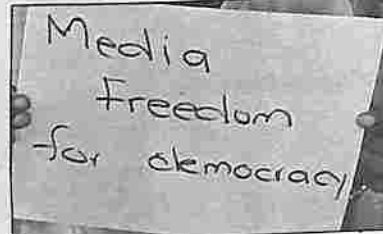 Media
Freedom
for democracy